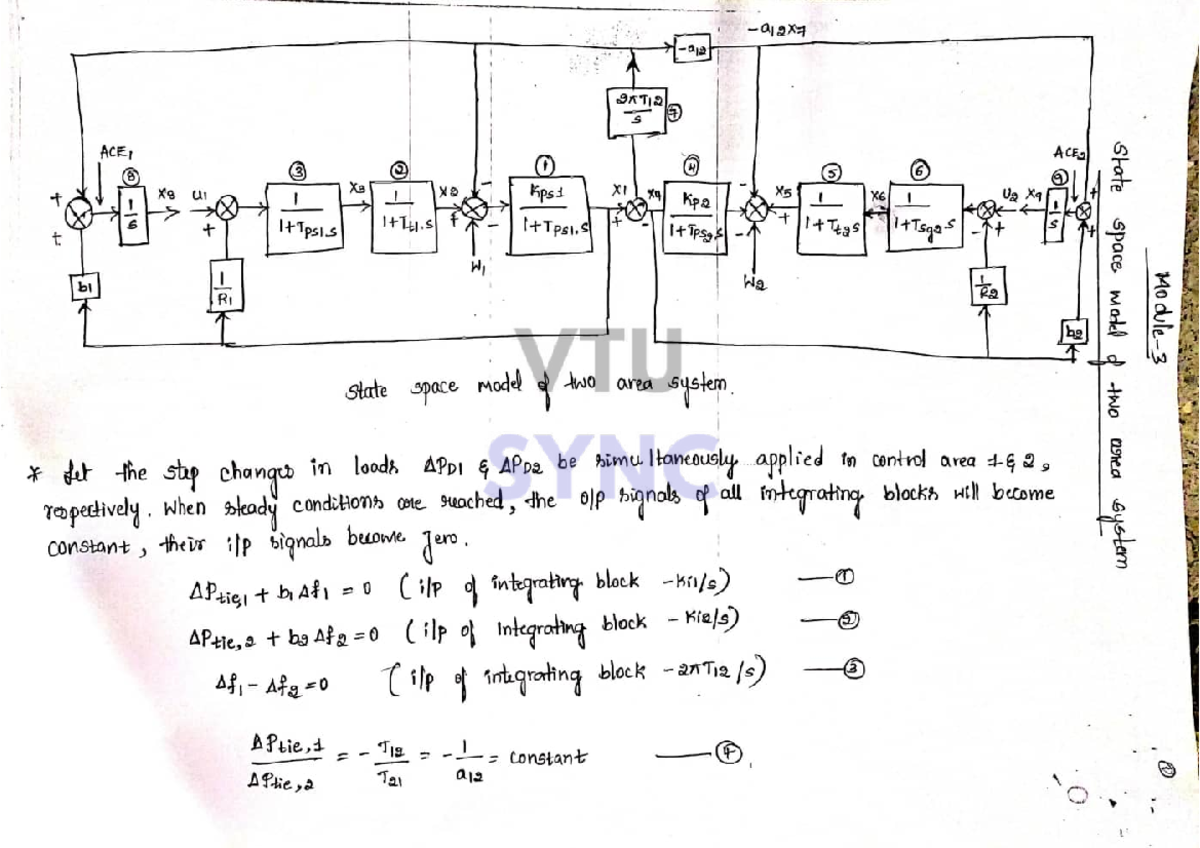 Module-3
State space model of two area system
-a12x7
-a12
2πT12
s
⑦
ACE1
⑧
1
s
x8
u1
③
1
1+Tps1.s
x3
②
1
1+Tt1.s
x2
①
Kps1
1+Tps1.s
x1
x4
④
Kp2
1+Tps2s
x5
⑤
1
1+Tt2s
x6
⑥
1
1+Tsg2s
u2
x9
⑨
1
s
ACE2
+
t
b1
1
R1
W1
W2
1
R2
b2
State space model of two area system.
VTU
SYNC
* Let the step changes in loads ΔPD1 & ΔPD2 be simultaneously applied in control area 1 & 2,
respectively. When steady conditions are reached, the o/p signals of all integrating blocks will become
constant, their i/p signals become zero.
ΔPtie,1 + b1 Δf1 = 0 (i/p of integrating block -Ki1/s) — ①
ΔPtie,2 + b2 Δf2 = 0 (i/p of Integrating block -Ki2/s) — ②
Δf1 - Δf2 = 0 (i/p of integrating block -2πT12/s) — ③
ΔPtie,1 / ΔPtie,2 = - T12 / T21 = - 1 / a12 = constant — ④